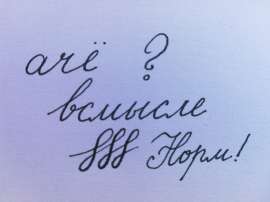 ачё ?
всмысле
§§§ Норм!